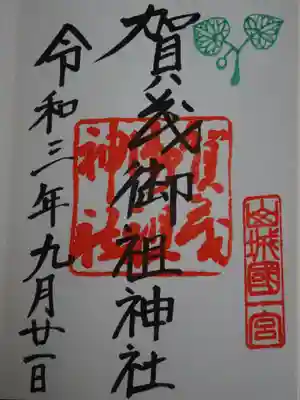 山城國一宮
賀茂御祖神社
賀茂御祖神社
令和三年九月廿一日